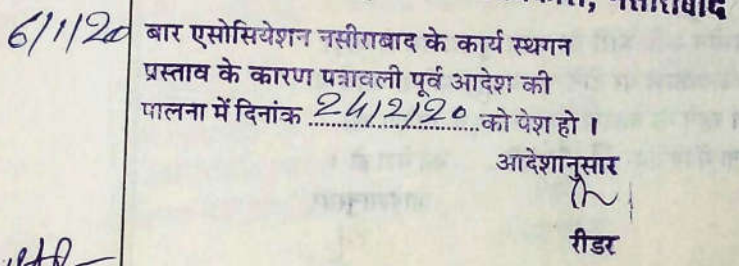 नसीराबाद
6/1/20 बार एसोसियेशन नसीराबाद के कार्य स्थगन
प्रस्ताव के कारण पत्रावली पूर्व आदेश की
पालना में दिनांक 24/2/20 को पेश हो ।
आदेशानुसार
रीडर